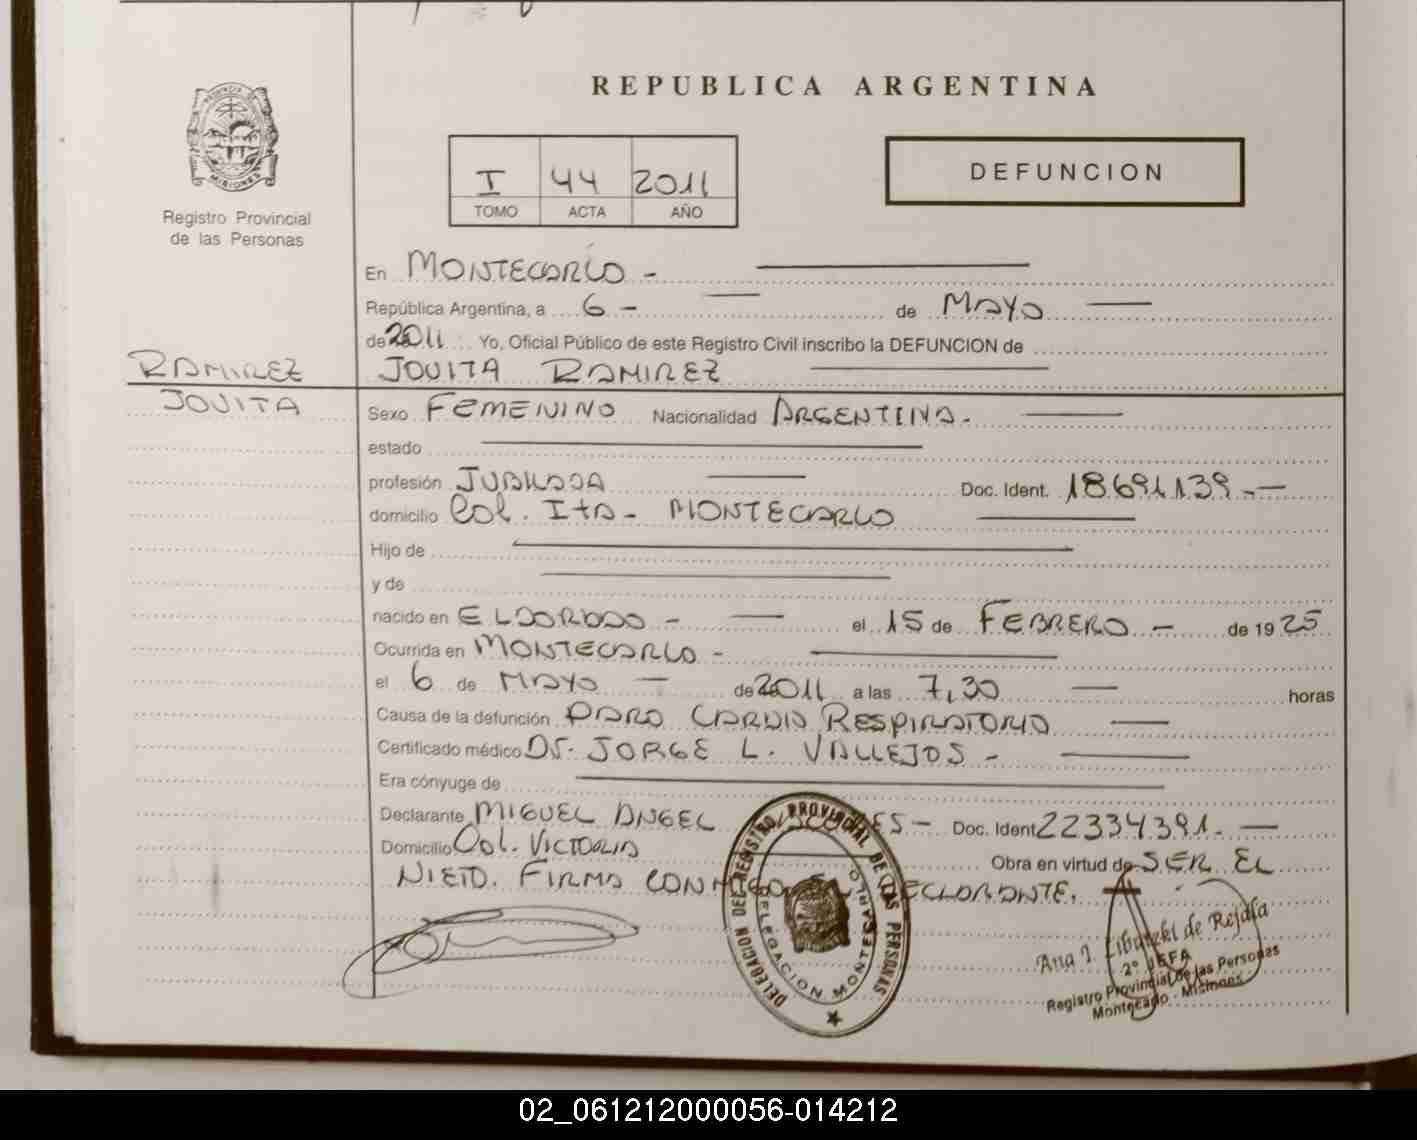 REPUBLICA ARGENTINA
PROVINCIA DE
MISIONES
Registro Provincial
de las Personas
I 44 2011
TOMO ACTA AÑO
DEFUNCION
En MONTECARLO -
República Argentina, a 6 - de MAYO
de 2011 Yo, Oficial Público de este Registro Civil inscribo la DEFUNCION de
RAMIREZ JOVITA RAMIREZ
JOVITA Sexo FEMENINO Nacionalidad ARGENTINA.
estado
profesión JUBILADA Doc. Ident. 18691139.-
domicilio Col. Ita - MONTECARLO
Hijo de
y de
nacido en ELDORADO - el 15 de FEBRERO - de 1925
Ocurrida en MONTECARLO -
el 6 de MAYO de 2011 a las 7,30 horas
Causa de la defunción PARO CARDIO RESPIRATORIO
Certificado médico Dr. JORGE L. VALLEJOS -
Era cónyuge de
Declarante MIGUEL ANGEL Doc. Ident 22334391.
Domicilio Col. VICTORIA Obra en virtud de SER EL
NIETO. FIRMA CONMIGO DECLARANTE.
DELEGACION DEL REGISTRO PROVINCIAL DE LAS PERSONAS
DELEGACION MONTECARLO
Ana I. de Rejala
2° JEFA
Registro Provincial de las Personas
Montecarlo - Misiones
02_061212000056-014212